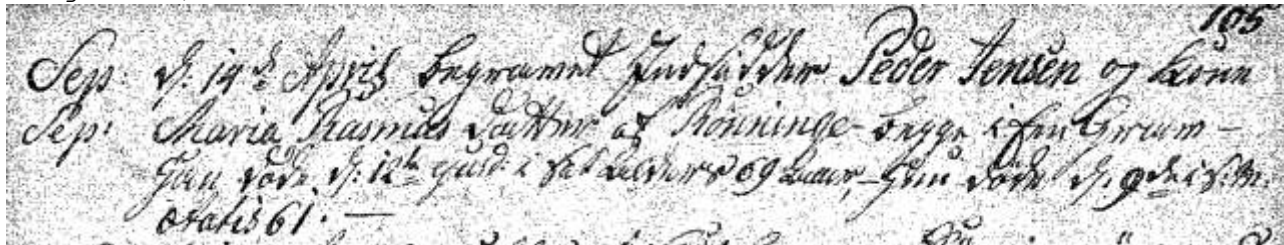 105
Sep: d: 14de April begravet Indsidder Peder Jensen og Kone
Sep: Maria Rasmus Datter af Rönninge begge i een Grav —
Han döde d: 12te i hans Alders 69 Aar, — Hun döde d: 9de i s: M:
ætatis 61. —